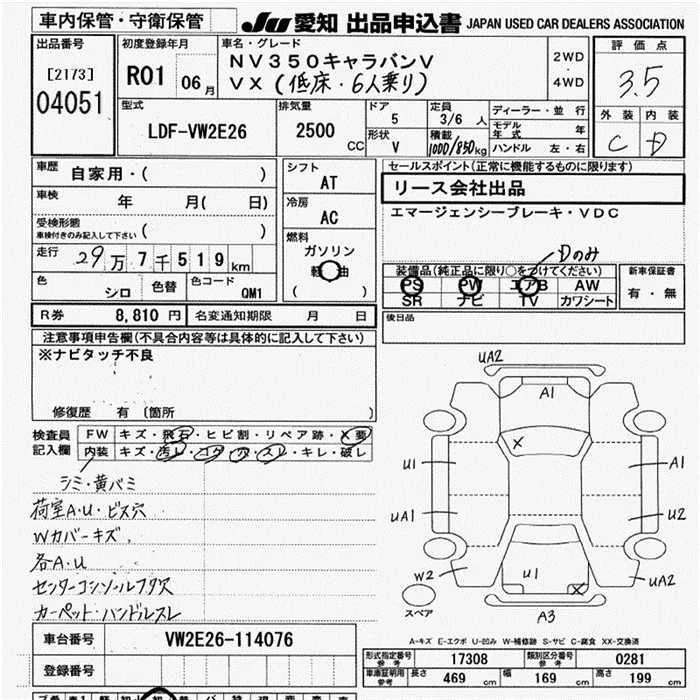 車内保管・守衛保管
JU 愛知 出品申込書 JAPAN USED CAR DEALERS ASSOCIATION
出品番号
[2173]
04051
初度登録年月
R01 06月
車名・グレード
NV350キャラバンV
VX (低床・6人乗り)
2WD
・
4WD
評価点
3.5
外装 内装
C D
型式
LDF-VW2E26
排気量
2500 CC
ドア
5
定員
3/6 人
形状
V
積載
1000/850kg
ディーラー・並行
モデル年式 年
ハンドル 左・右
車歴
自家用・( )
車検
年 月( 日)
受検形態
車検付きのみ記入して下さい ( )
走行
29万7千519km
色
シロ
色替
色コード
QM1
シフト
AT
冷房
AC
燃料
ガソリン
軽油
( )
セールスポイント(正常に機能するものに限ります)
リース会社出品
エマージェンシーブレーキ・VDC
Dのみ
装備品(純正品に限り○をつけてください)
PS PW エアB AW
SR ナビ TV カワシート
新車保証書
有・無
R券 8,810 円 名変通知期限 月 日
後日品
注意事項申告欄(不具合内容等は具体的に記入して下さい)
※ナビタッチ不良
修復歴 有 〔箇所 〕
検査員
記入欄
FW キズ・飛石・ヒビ割・リペア跡・X要
内装 キズ・汚レ・コゲ・穴・スレ・キレ・破レ
シミ・黄バミ
荷室A・U・ビス穴
Wカバーキズ
各A・U
センターコンソールフタ穴
カーペット・ハンドルスレ
UA2
A1
X
U1
A1
UA1
U2
W2
U1
X
UA2
A3
スペア
A-キズ E-エクボ U-凹み W-補修跡 S-サビ C-腐食 XX-交換済
車台番号
VW2E26-114076
登録番号
型式指定番号
参考
17308
類別区分番号
参考
0281
車庫証明用
参考
長さ 469 cm 幅 169 cm 高さ 199 cm